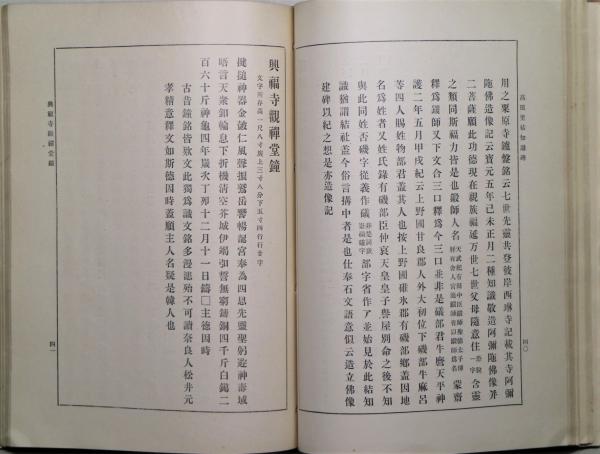 高田里結知識碑
四〇
用之栗原寺鑪盤銘云七世先靈共登彼岸西琳寺記載其寺阿彌
陁佛造像記云寶元五年己未正月二種知識敬造阿彌陁佛像并
二菩薩願此功德現在親族福延万世七世父母隨意住 含靈
之類同斯福力皆是也鍛師人名 蒙齋
釋爲鍾師又下文合三口釋爲今三口並非是礒部君牛麿天平神
護二年五月甲戌紀云上野國甘良郡人外大初位下磯部牛麻呂
等四人賜姓物部君蓋其人也按上野國碓氷郡有磯部鄉蓋因地
名爲姓者又姓氏錄有磯部臣仲哀天皇皇子譽屋別命之後不知
與此同姓否磯字從義作礒 部字省作了並始見於此結知
識猶謂結社蓋今俗言講中者是也仕奉石文語意似云造立佛像
建碑以紀之想是亦造像記
興福寺觀禪堂鐘
文字所存高一尺八寸廣上三寸八分下五寸四行行廿字
揵搥神器金皷仁風聲振鷲岳響暢龍宮奉爲四恩先靈聖躬遊神壽域
晤言天衆釦輪息下折機清空芥城伊竭弘誓無窮鑄銅四千斤白鑞二
百六十斤神龜四年歲次丁卯十二月十一日鑄□主德因時
古昔鐘銘皆欵文此獨爲識文銘多漫漶殆不可讀奈良人松井元
孝精意釋文如斯德因時蓋願主人名疑是韓人也
興福寺觀禪堂鐘
四一